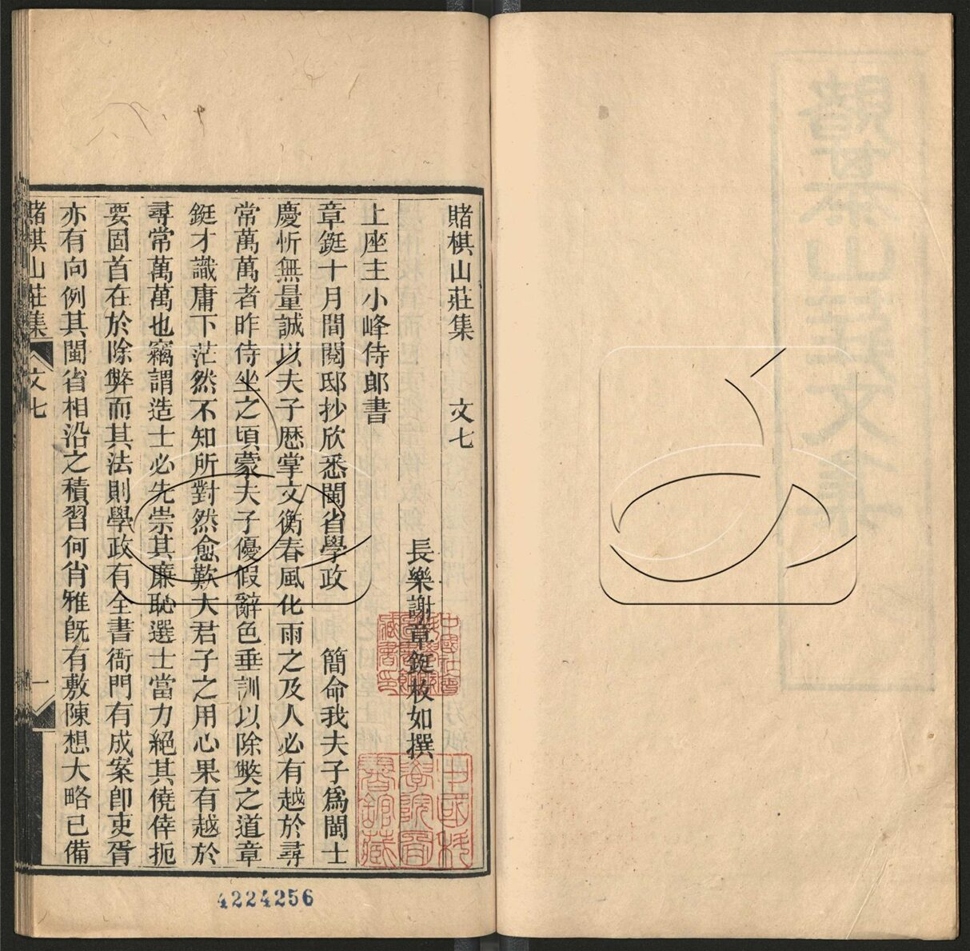 賭棋山莊集 文七
長樂謝章鋌枚如撰
上座主小峰侍郎書
章鋌十月間閱邸抄欣悉閩省學政 簡命我夫子爲閩士
慶忻無量誠以夫子歷掌文衡春風化雨之及人必有越於尋
常萬萬者昨侍坐之頃蒙夫子優假辭色垂訓以除弊之道章
鋌才識庸下茫然不知所對然愈歎大君子之用心果有越於
尋常萬萬也竊謂造士必先崇其廉恥選士當力絕其僥倖扼
要固首在於除弊而其法則學政有全書衙門有成案即吏胥
亦有向例其閩省相沿之積習何肖雅旣有敷陳想大略已備
賭棋山莊集 文七 一
4224256